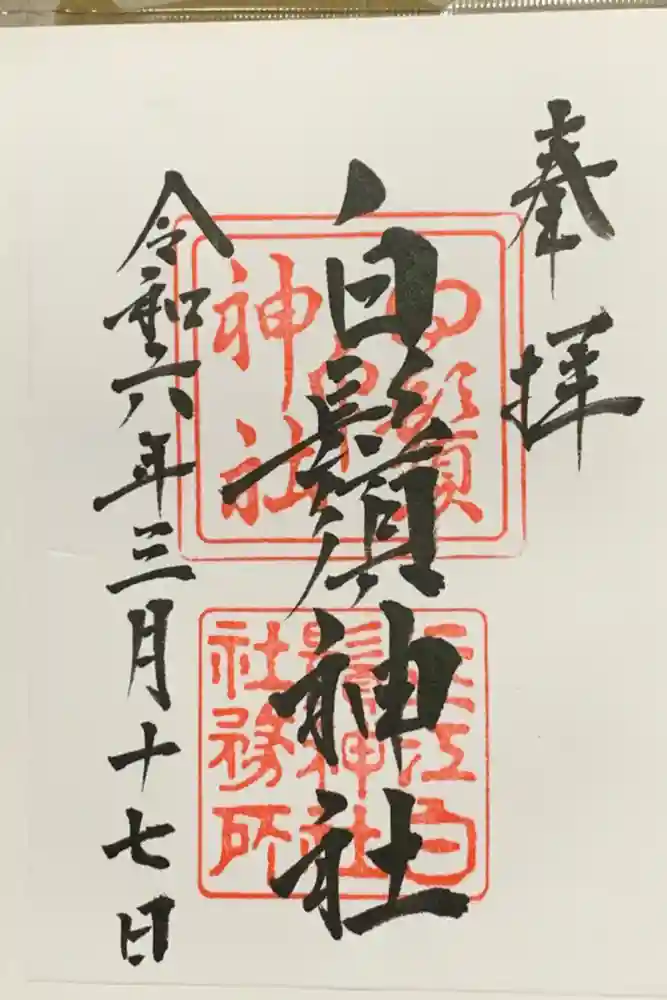 奉拝
白鬚神社
令和六年三月十七日
白鬚
神社
江白
鬚神社
社務所